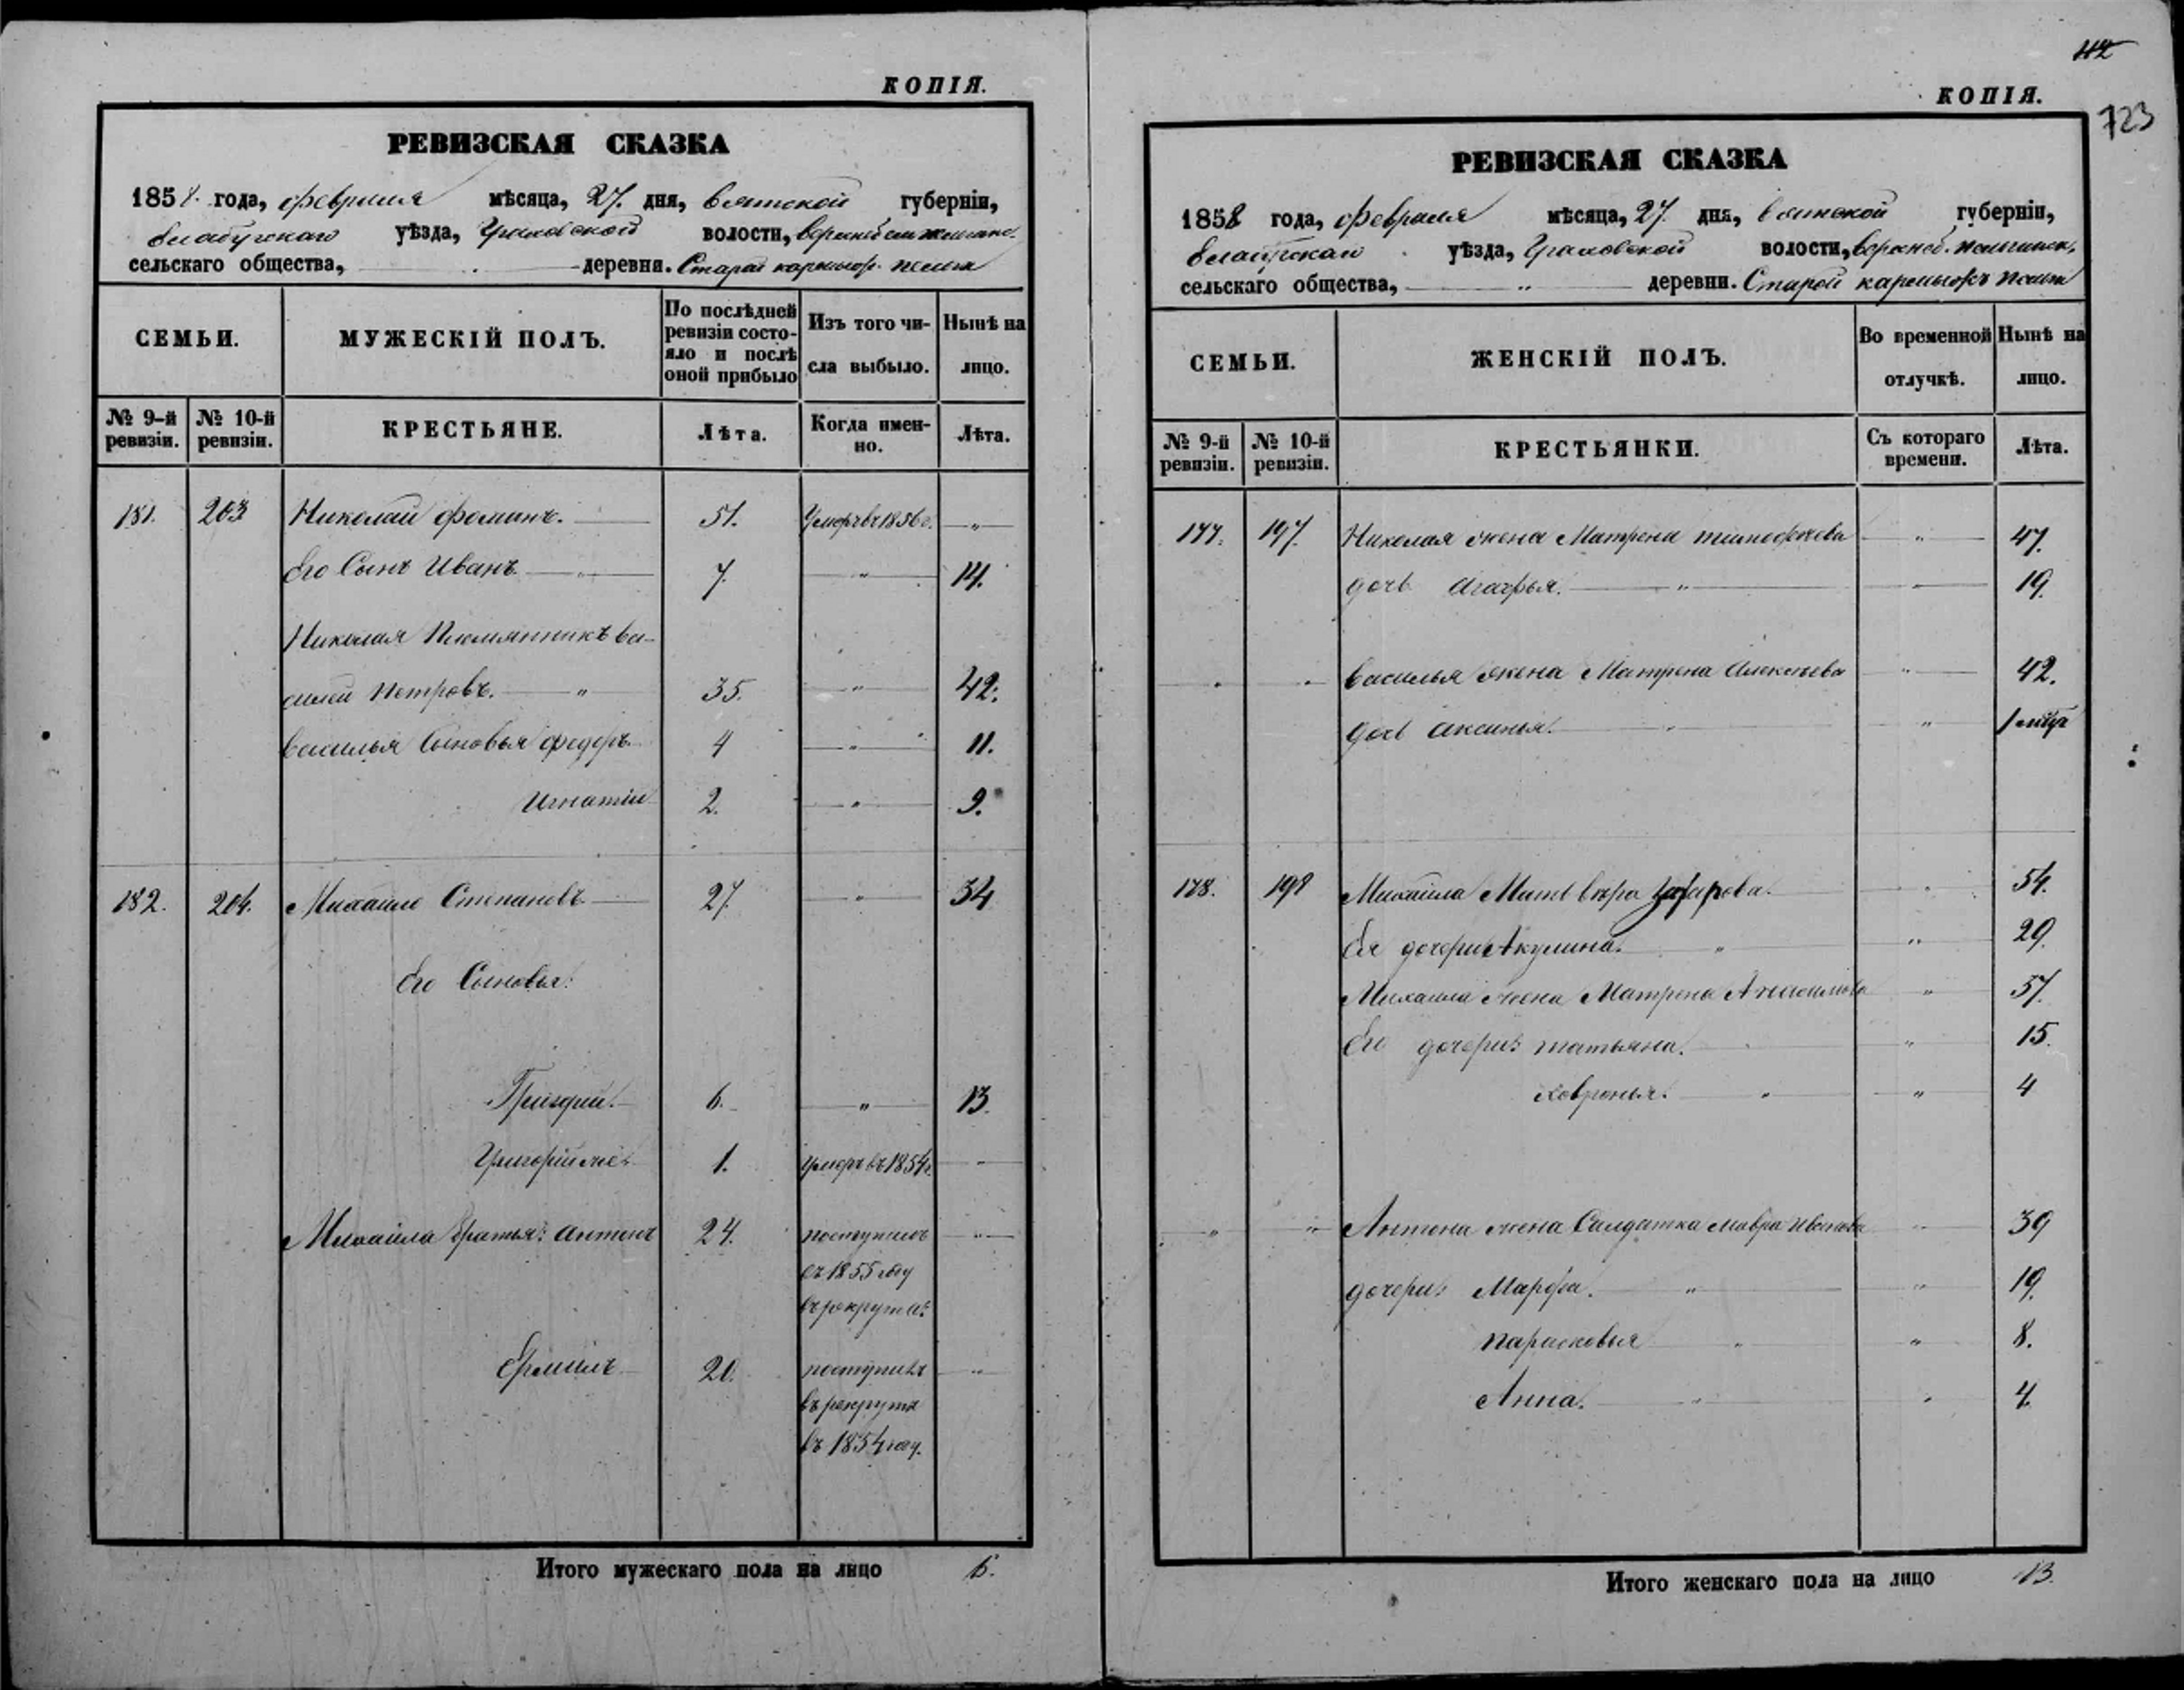 КОПІЯ.
РЕВИЗСКАЯ СКАЗКА
1858. года, февраля мѣсяца, 27. дня, Вятской губерніи,
Елабугскаго уѣзда, Граховской волости,
сельскаго общества, деревня. Старой
СЕМЬИ.
МУЖЕСКІЙ ПОЛЪ.
По послѣдней ревизіи состояло и послѣ оной прибыло
Изъ того числа выбыло.
Нынѣ на лицо.
№ 9-й ревизіи.
№ 10-й ревизіи.
КРЕСТЬЯНЕ.
Лѣта.
Когда именно.
Лѣта.
181. 203 Николай Фоминъ. 51. Умеръ въ 1856 г. "
Его Сынъ Иванъ " 7. " 14.
Николая Племянникъ Ва-
силей Петровъ. " 35. " 42.
Василья Сыновья Федоръ 4 " 11.
Игнатій 2. " 9.
182. 204. Михайло Степановъ 27. " 34
Его Сыновья:
6. " 13.
1. Умеръ въ 1854 г. "
Михаила братья: Антонъ 24. поступилъ "
въ 1855 году
въ рекруты:
Ермилъ 20. поступилъ "
въ рекруты
въ 1854 году.
Итого мужескаго пола на лицо 6.
42
723
КОПІЯ.
РЕВИЗСКАЯ СКАЗКА
1858 года, февраля мѣсяца, 27. дня, Вятской губерніи,
уѣзда, Граховской волости,
сельскаго общества, " деревни. Старой
СЕМЬИ.
ЖЕНСКІЙ ПОЛЪ.
Во временной отлучкѣ.
Нынѣ на лицо.
№ 9-й ревизіи.
№ 10-й ревизіи.
КРЕСТЬЯНКИ.
Съ котораго времени.
Лѣта.
177. 197. Николая жена Матрена Тимофеева " 47.
дочь Агафья. " " 19.
" " Василья жена Матрена Алексѣева " 42.
дочь Аксинья. " "
178. 198 Михаила Мать Вѣра Захарова. " 54.
Ея дочери Акулина. " " 29.
Михаила жена Матрена " 37.
Его дочери: Татьяна. " " 15.
Ховронья. " " 4
" " Антона жена Салдатка Мавра Иванова " 39
дочери: Марфа. " " 19.
Парасковья " " 8.
Анна. " " 4.
Итого женскаго пола на лицо 13.